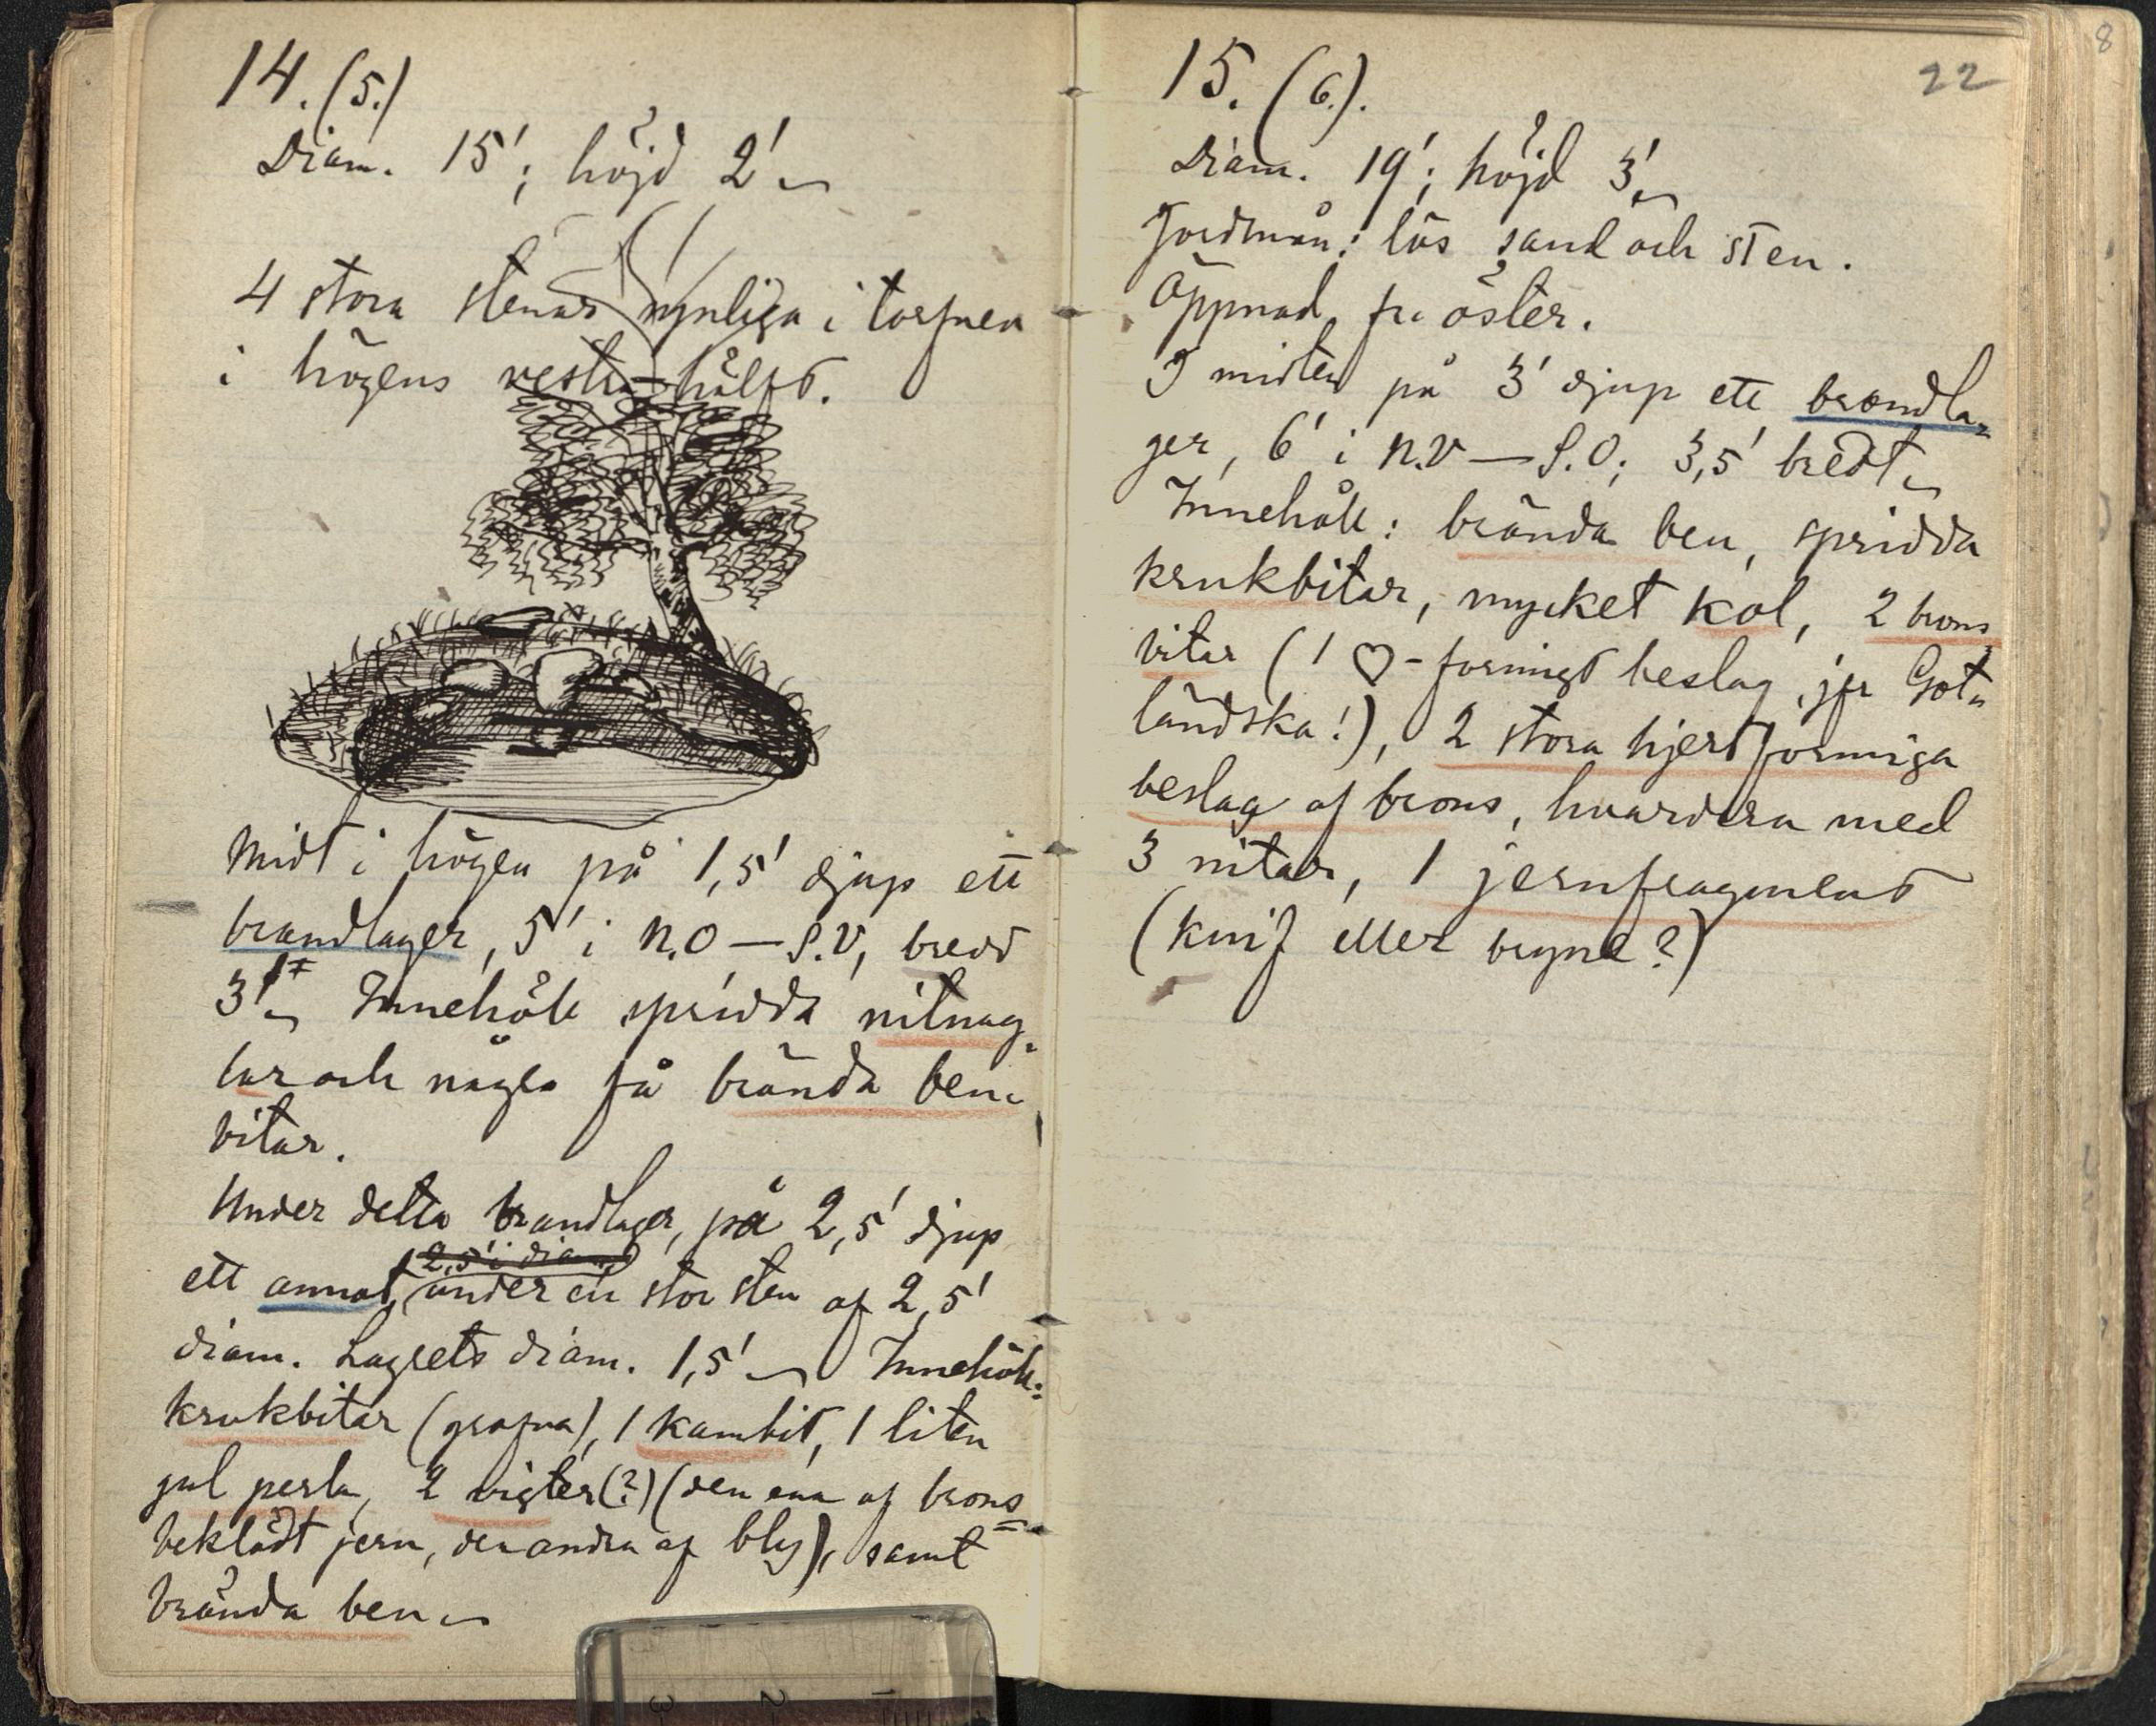 14. (5.)
Diam. 15'; höjd 2'
4 stora stenar synliga i torfven
i högens vestra hälft.
Midt i högen på 1,5' djup ett
brandlager, 5' i N.O — S.V, bredd
3' Innehöll spridda nitnag-
lar och några få brända ben-
bitar.
Under detta brandlager, på 2,5' djup
2,5' i diam.
ett annat, under en stor sten af 2,5'
diam. Lagrets diam. 1,5' Innehöll:
krukbitar (grofva), 1 kambit, 1 liten
gul perla, 2 vigter (?) (den ena af brons-
beklädt jern, den andra af bly), samt
brända ben
22
15. (6.).
Diam. 19'; höjd 3'
Jordmån: lös sand och sten.
Öppnad fr. öster.
I midten på 3' djup ett brandla-
ger, 6' i N.V — S.O; 3,5' bredt
Innehöll: brända ben, spridda
krukbitar, mycket kol, 2 brons
bitar (1 ♡-formigt beslag, jfr Got-
ländska!), 2 stora hjertformiga
beslag af brons, hvardera med
3 nitar, 1 jernfragment
(knif eller bryne?)
8